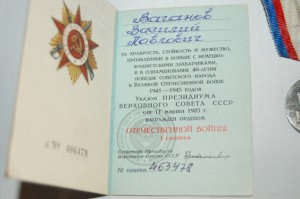 Ваганов
Василий
Павлович
ЗА ХРАБРОСТЬ, СТОЙКОСТЬ И МУЖЕСТВО,
ПРОЯВЛЕННЫЕ В БОРЬБЕ С НЕМЕЦКО-
ФАШИСТСКИМИ ЗАХВАТЧИКАМИ,
И В ОЗНАМЕНОВАНИЕ 40-ЛЕТИЯ
ПОБЕДЫ СОВЕТСКОГО НАРОДА
В ВЕЛИКОЙ ОТЕЧЕСТВЕННОЙ ВОЙНЕ
1941—1945 ГОДОВ
УКАЗОМ ПРЕЗИДИУМА
ВЕРХОВНОГО СОВЕТА СССР
ОТ 11 МАРТА 1985 Г.
НАГРАЖДЕН ОРДЕНОМ
ОТЕЧЕСТВЕННОЙ ВОЙНЫ
I СТЕПЕНИ
Секретарь Президиума
Верховного Совета СССР
№ ордена 463478